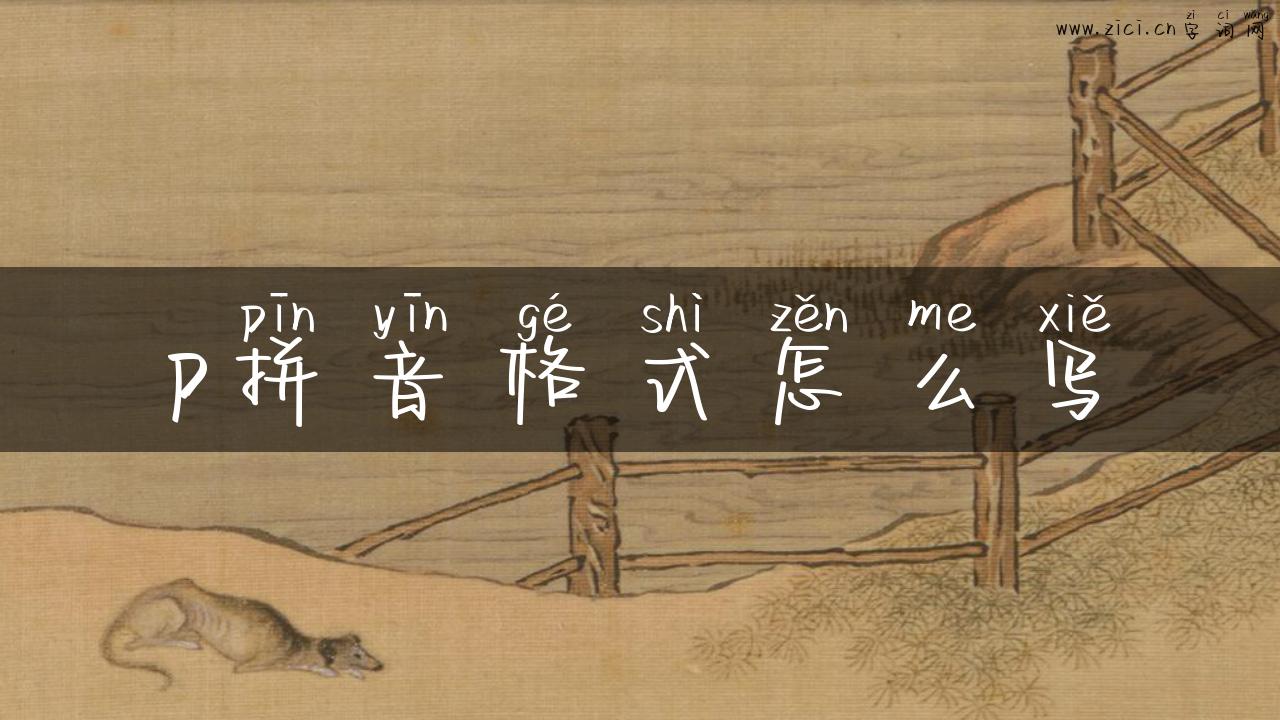 zi ci wang
www.zici.cn 字词网
pīn yīn gé shì zěn me xiě
p拼音格式怎么写